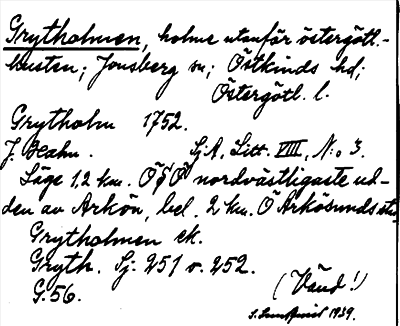 Grytholmen, holme utanför östergötl.-
kusten; Jonsberg sn; Östkinds hd;
Östergötl. l.
Grytholm 1752.
J. Hahn. Sj.A, Litt. VIII, N:o 3.
Läge 1,2 km. ÖSÖ nordvästligaste ud-
den av Arkön, bel. 2 km. Ö Arkösunds
Grytholmen ek.
Gryth. Sj. 251 o. 252.
G. 56.
(Vänd!)
1939.